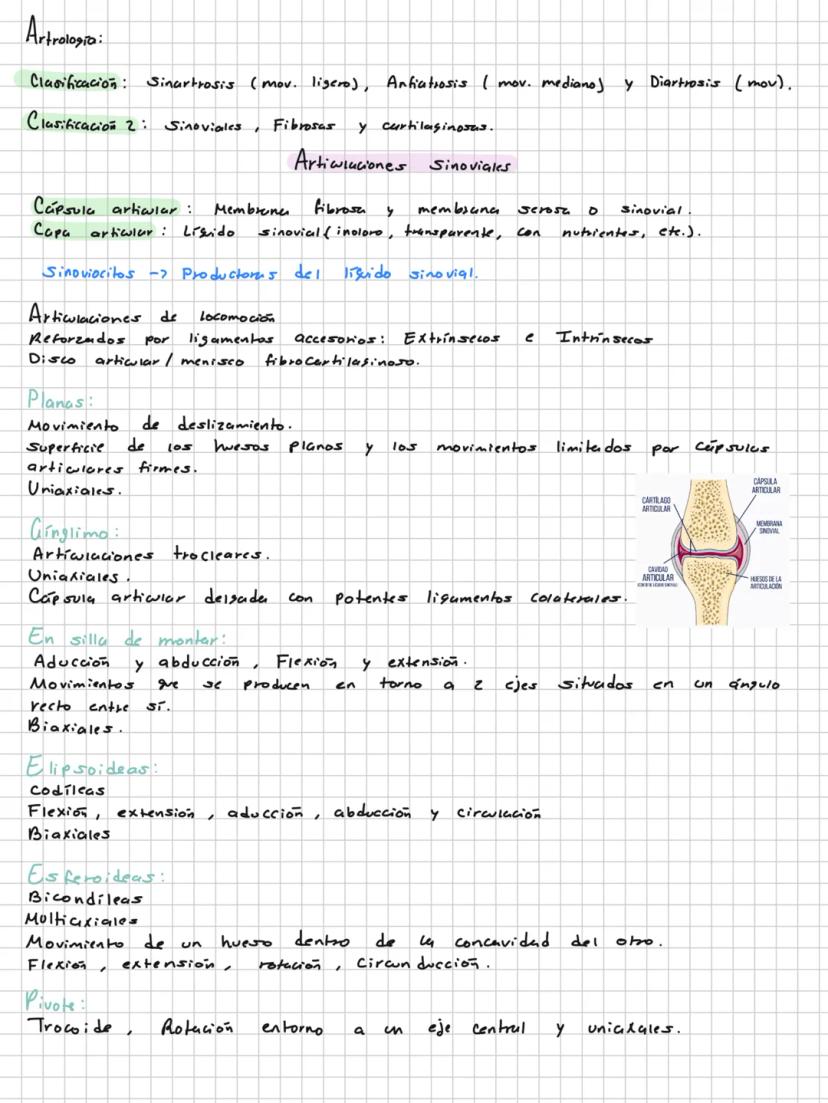 Artrología:
Clasificación: Sinartrosis (mov. ligero), Anfiatrosis (mov. mediano) y Diartrosis (mov).
Clasificación 2: Sinoviales, Fibrosas y cartilaginosas.
Articulaciones Sinoviales
Cápsula articular: Membrana fibrosa y membrana serosa o sinovial.
Capa articular: Líquido sinovial (inoloro, transparente, con nutrientes, etc.).
Sinoviocitos -> Productores del líquido sinovial.
Articulaciones de locomoción
Reforzados por ligamentos accesorios: Extrínsecos e Intrínsecos
Disco articular/menisco fibrocartilaginoso.
Planas:
Movimiento de deslizamiento.
Superficie de los huesos planos y los movimientos limitados por cápsulas
articulares firmes.
Uniaxiales.
CARTÍLAGO
ARTICULAR
CÁPSULA
ARTICULAR
MEMBRANA
SINOVIAL
CAVIDAD
ARTICULAR
HUESOS DE LA
ARTICULACIÓN
Gínglimo:
Artículaciones trocleares.
Uniaxiales.
Cápsula articular delgada con potentes ligamentos colaterales.
En silla de montar:
Aducción y abducción, Flexión y extensión.
Movimientos que se producen en torno a 2 ejes situados en un ángulo
recto entre sí.
Biaxiales.
Elipsoideas:
Codíleas
Flexión, extensión, aducción, abducción y circulación
Biaxiales
Esferoideas:
Bicondíleas
Multiaxiales
Movimiento de un hueso dentro de la concavidad del otro.
Flexión, extensión, rotación, Circunducción.
Pivote:
Trocoide, Rotación entorno a un eje central y uniaxales.